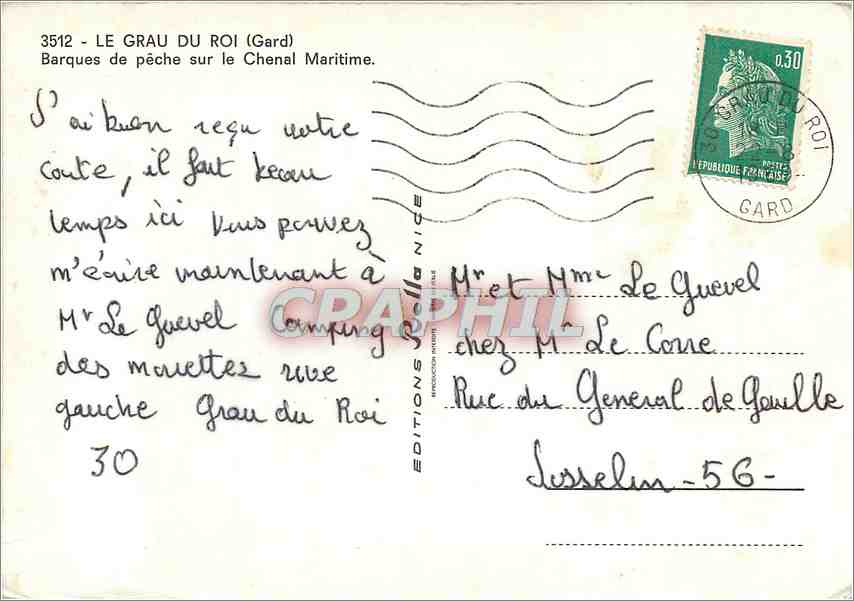 3512 - LE GRAU DU ROI (Gard)
Barques de pêche sur le Chenal Maritime.
J'ai bien reçu votre
carte, il fait beau
temps ici Vous pouvez
m'écrire maintenant à
Mr Le Guevel Camping
des mouettes rive
gauche Grau du Roi
30
EDITIONS Stella NICE
REPRODUCTION INTERDITE
CPAPHIL
0.30
POSTES
REPUBLIQUE FRANÇAISE
30 GRAU DU ROI
GARD
Mr et Mme Le Guevel
chez Mr Le Corre
Rue du General de Gaulle
Josselin - 56 -